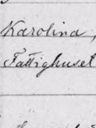 Karolina,
Fattighuset